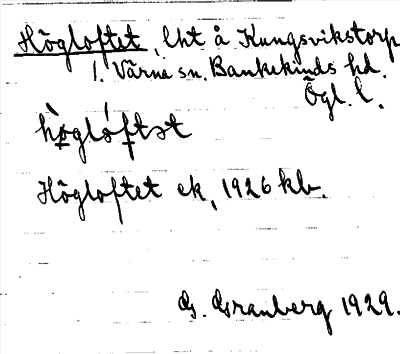 Högloftet, lht å Kungsvikstorp
i. Värna sn. Bankekinds hd.
Ögl. l.
hö̀glóftət
Högloftet ek, 1926 kb.
G. Granberg 1929.